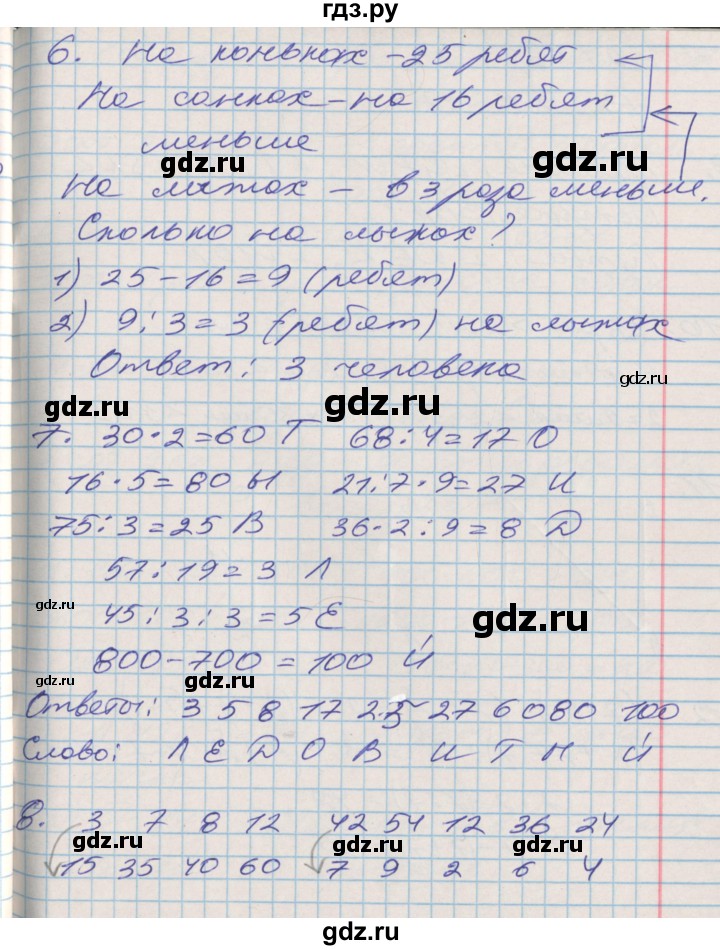 гдз.ру
6. На коньках - 25 ребят
На санках - на 16 ребят
меньше
gdz.ru gdz.ru
На лыжах - в 3 раза меньше.
Сколько на лыжах?
1) 25 - 16 = 9 (ребят)
2) 9 : 3 = 3 (ребят) на лыжах
gdz.ru
Ответ: 3 человека
gdz.ru gdz.ru
7. 30 · 2 = 60 Т 68 : 4 = 17 О
16 · 5 = 80 Ы 21 : 7 · 9 = 27 И
75 : 3 = 25 В 36 · 2 : 9 = 8 Д
57 : 19 = 3 Л
gdz.ru
45 : 3 : 3 = 5 Е
gdz.ru
800 - 700 = 100 Й
gdz.ru gdz.ru
Ответы: 3 5 8 17 25 27 60 80 100
Слово: Л Е Д О В И Т Ы Й
8. 3 7 8 12 42 54 12 36 24
gdz.ru gdz.ru gdz.ru
15 35 40 60 7 9 2 6 4
gdz.ru